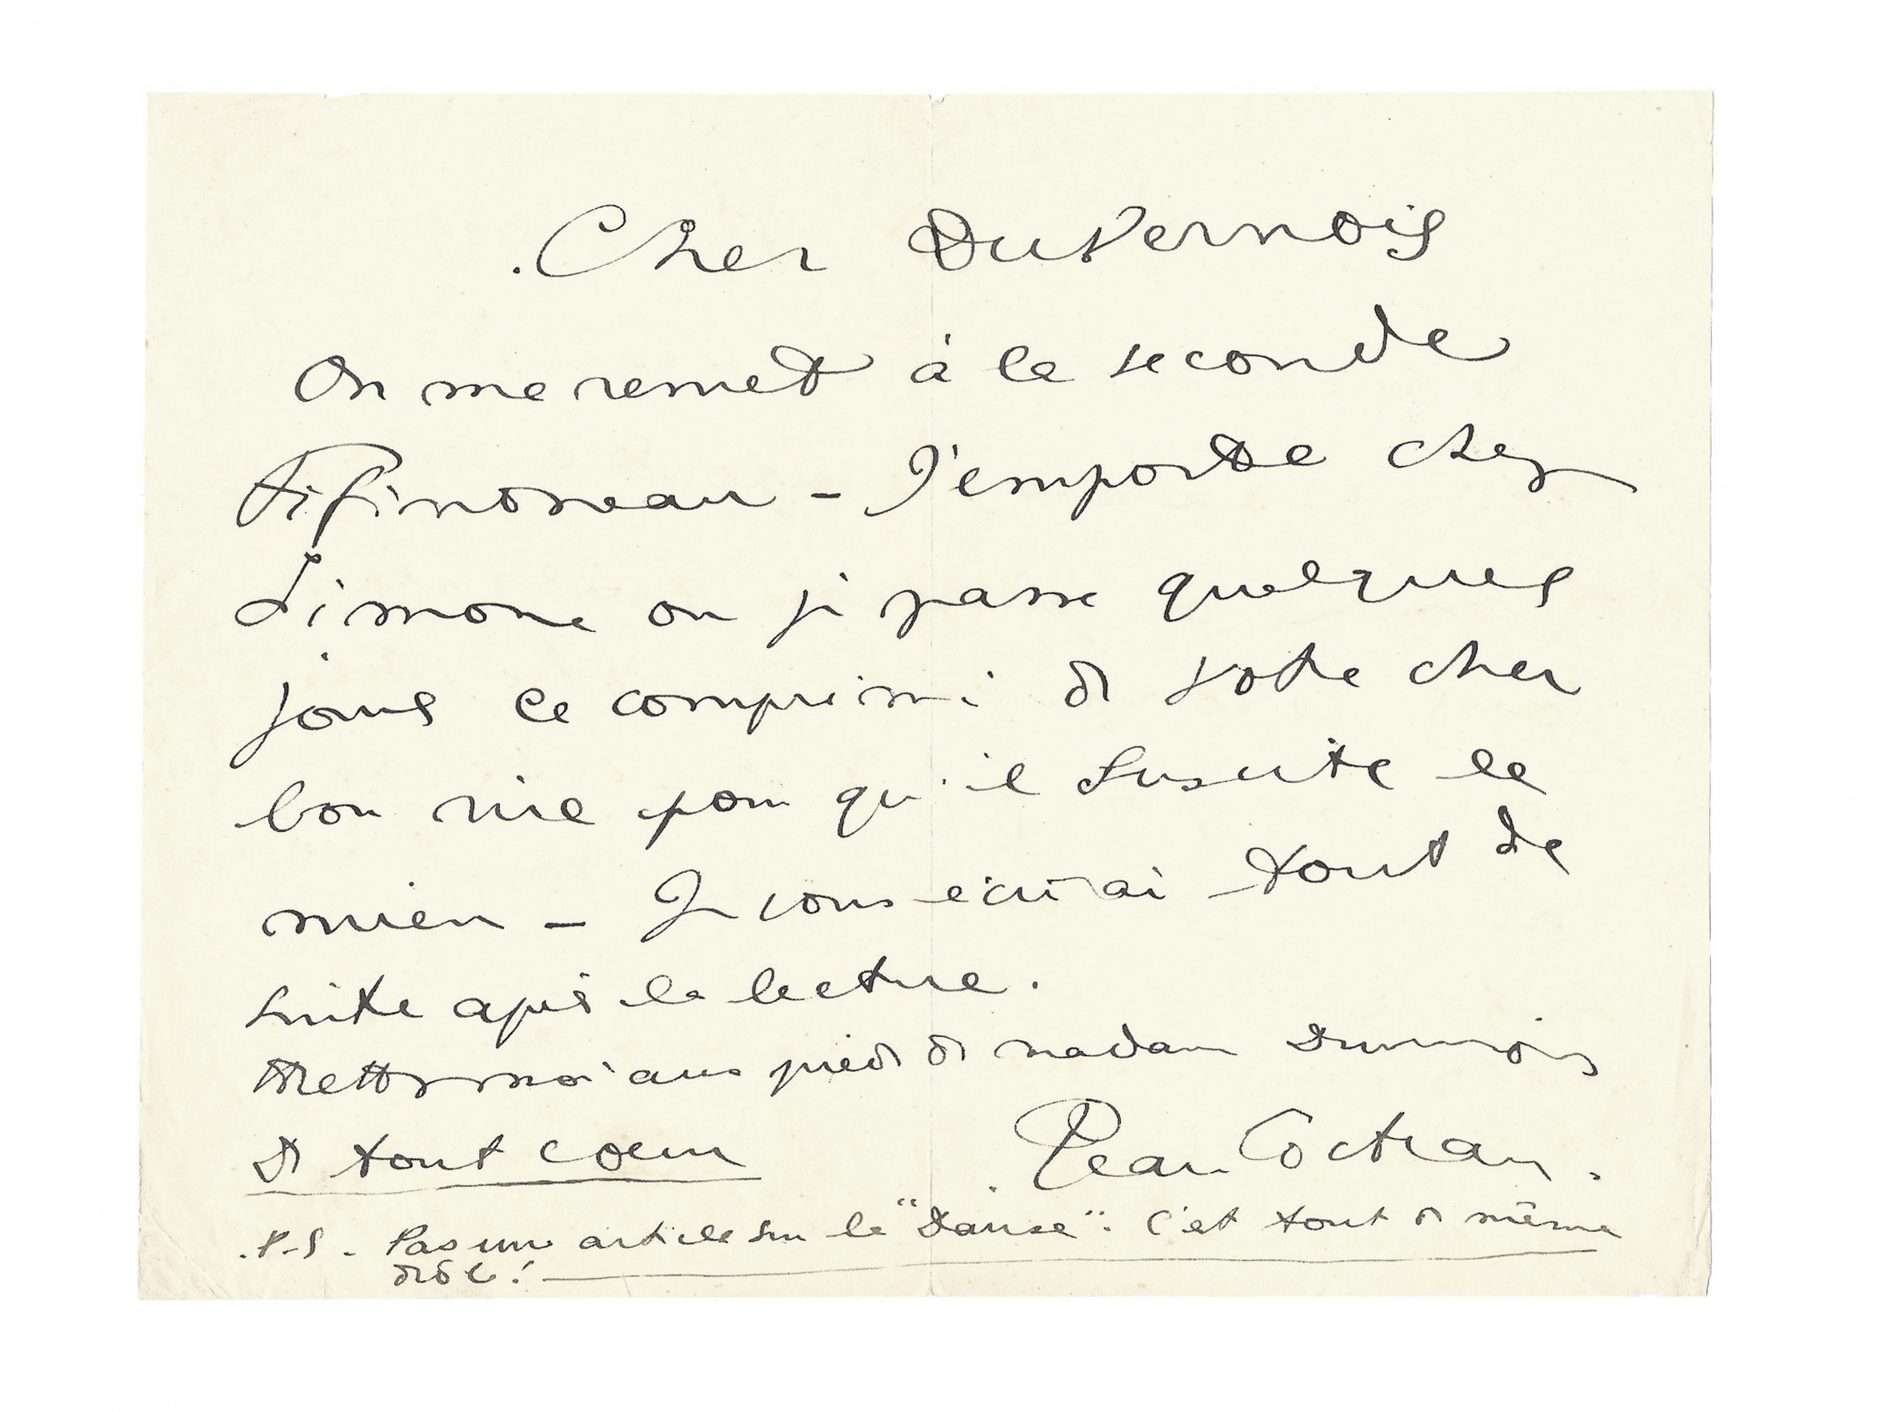 Cher Duvernois
On me remet à la seconde
Fifinoiseau – J'emporte chez
Simone où j'y passe quelques
jours ce comprimé de votre cher
bon rire pour qu'il suscite le
mien – Je vous écrirai tout de
suite après la lecture.
Mettez moi aux pieds de madame Duvernois
De tout coeur Jean Cocteau.
.P-S. Pas un article sur la "Danse". C'est tout de même
drôle!